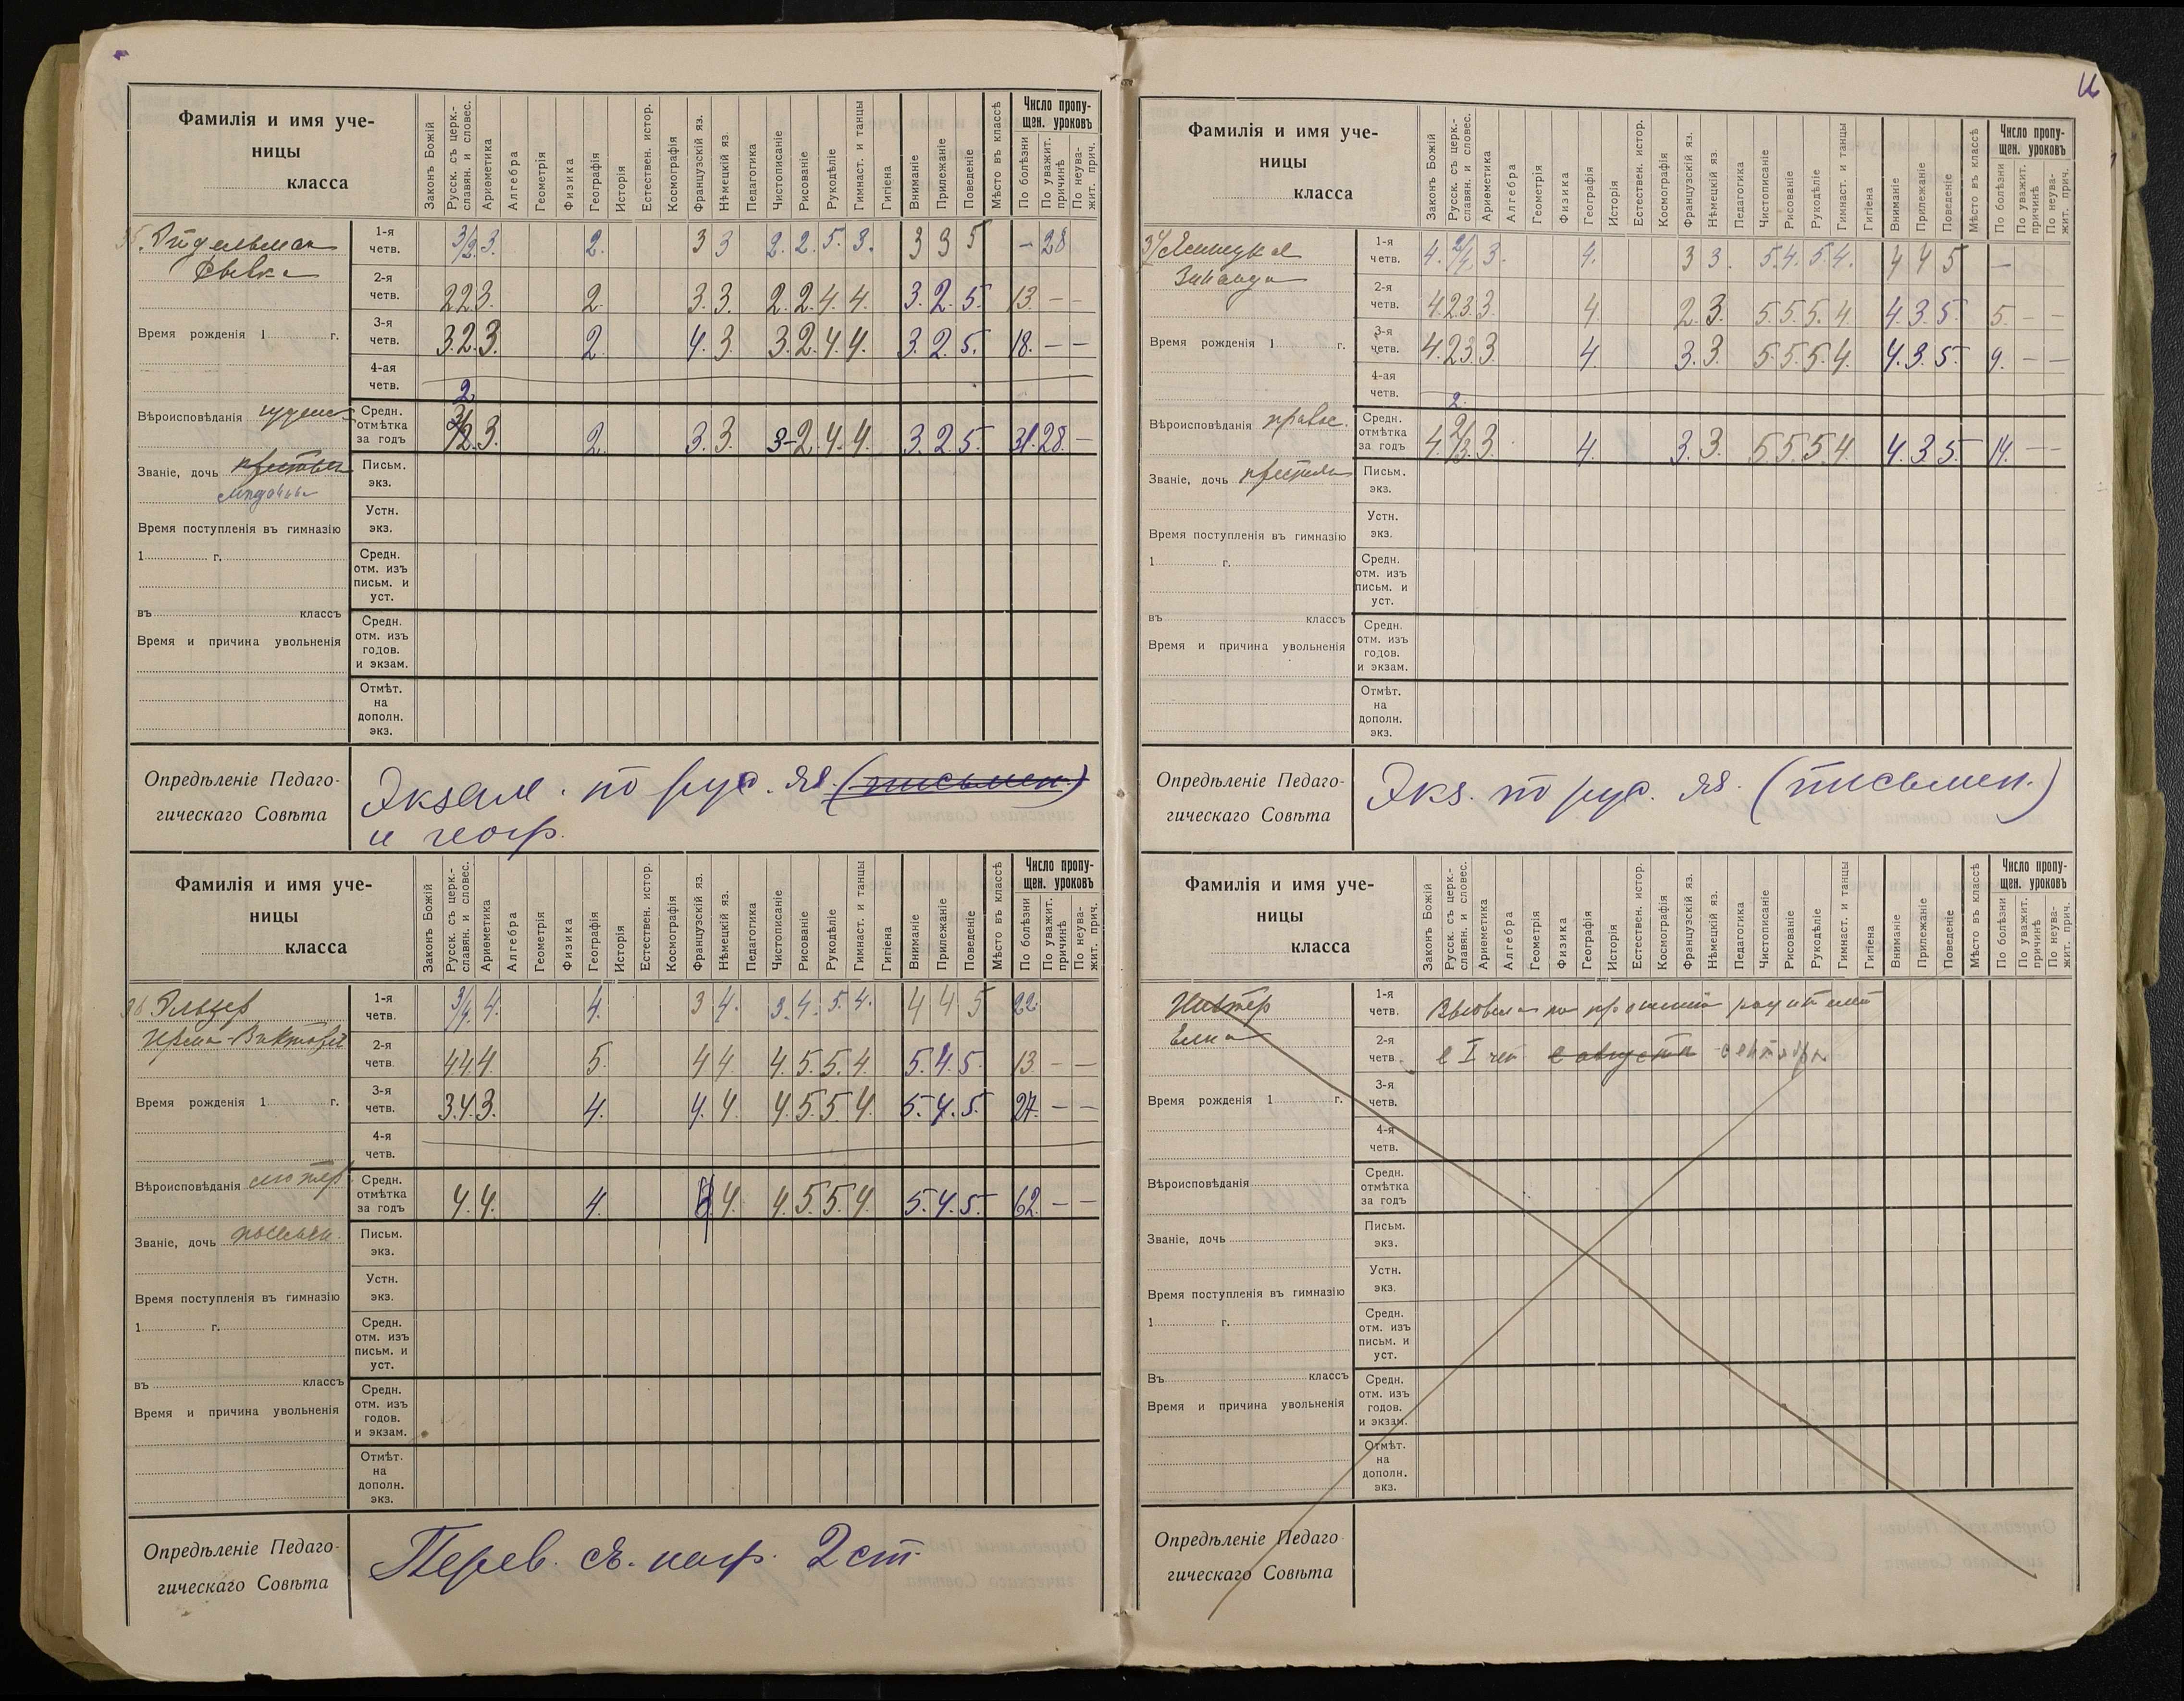 Фамилія и имя уче-
ницы
класса
Законъ Божій
Русск. съ церк.-
славян. и словес.
Ариѳметика
Алгебра
Геометрія
Физика
Географія
Исторія
Естествен. истор.
Космографія
Французскій яз.
Нѣмецкій яз.
Педагогика
Чистописаніе
Рисованіе
Рукодѣліе
Гимнаст. и танцы
Гигіена
Вниманіе
Прилежаніе
Поведеніе
Мѣсто въ классѣ
Число пропу-
щен. уроковъ
По болѣзни
По уважит.
причинѣ
По неува-
жит. прич.
1-я четв. 3/2. 3. 2. 3 3 2. 2. 5. 3. 3 3 5 - 28
2-я четв. 2 2 3. 2. 3. 3. 2. 2. 4. 4. 3. 2. 5. 13. - -
Время рожденія 1 г.
3-я четв. 3. 2. 3. 2. 4. 3. 3. 2. 4. 4. 3. 2. 5. 18. - -
4-ая четв.
2.
Вѣроисповѣданія іудейс
Средн. отмѣтка за годъ 2. 3. 2. 3. 3. 3- 2. 4. 4. 3. 2 5. 31. 28. -
Званіе, дочь
Письм. экз.
Устн. экз.
Время поступленія въ гимназію
1 г.
Средн. отм. изъ письм. и уст.
въ классъ
Средн. отм. изъ годов. и экзам.
Время и причина увольненія
Отмѣт. на дополн. экз.
Опредѣленіе Педаго-
гическаго Совѣта
Экзам. по рус. яз. (письмен.)
и геогр.
Фамилія и имя уче-
ницы
класса
Законъ Божій
Русск. съ церк.-
славян. и словес.
Ариѳметика
Алгебра
Геометрія
Физика
Географія
Исторія
Естествен. истор.
Космографія
Французскій яз.
Нѣмецкій яз.
Педагогика
Чистописаніе
Рисованіе
Рукодѣліе
Гимнаст. и танцы
Гигіена
Вниманіе
Прилежаніе
Поведеніе
Мѣсто въ классѣ
Число пропу-
щен. уроковъ
По болѣзни
По уважит.
причинѣ
По неува-
жит. прич.
36 Эльцер
1-я четв. 3/4. 4. 4. 3 4. 3. 4. 5. 4. 4 4 5 22.
Ирма-Виктория
2-я четв. 4 4 4. 5. 4 4. 4. 5. 5. 4. 5. 4. 5. 13. - -
Время рожденія 1 г.
3-я четв. 3. 4. 3. 4. 4. 4. 4. 5. 5. 4. 5. 4. 5. 27. - -
4-я четв.
Вѣроисповѣданія лютер
Средн. отмѣтка за годъ 4. 4. 4. 4. 4. 5 5 4. 5. 4. 5. 62. - -
Званіе, дочь поселян.
Письм. экз.
Устн. экз.
Время поступленія въ гимназію
1 г.
Средн. отм. изъ письм. и уст.
въ классъ
Средн. отм. изъ годов. и экзам.
Время и причина увольненія
Отмѣт. на дополн. экз.
Опредѣленіе Педаго-
гическаго Совѣта
Перев. съ нагр. 2 ст.
Фамилія и имя уче-
ницы
класса
Законъ Божій
Русск. съ церк.-
славян. и словес.
Ариѳметика
Алгебра
Геометрія
Физика
Географія
Исторія
Естествен. истор.
Космографія
Французскій яз.
Нѣмецкій яз.
Педагогика
Чистописаніе
Рисованіе
Рукодѣліе
Гимнаст. и танцы
Гигіена
Вниманіе
Прилежаніе
Поведеніе
Мѣсто въ классѣ
Число пропу-
щен. уроковъ
По болѣзни
По уважит.
причинѣ
По неува-
жит. прич.
37
1-я четв. 4. 3. 4. 3 3. 5. 4. 5. 4. 4 4 5 -
Зинаида
2-я четв. 4. 2 3. 3 4. 2. 3. 5. 5. 5. 4. 4. 3. 5. 5. - -
Время рожденія 1 г.
3-я четв. 4. 2 3. 3 4. 3. 3. 5. 5. 5. 4. 4. 3. 5. 9. - -
4-ая четв.
2.
Вѣроисповѣданія правос.
Средн. отмѣтка за годъ 4. 2/3. 3. 4. 3. 3. 5 5. 5. 4. 4. 3. 5. 14. - -
Званіе, дочь
Письм. экз.
Устн. экз.
Время поступленія въ гимназію
1 г.
Средн. отм. изъ письм. и уст.
въ классъ
Средн. отм. изъ годов. и экзам.
Время и причина увольненія
Отмѣт. на дополн. экз.
Опредѣленіе Педаго-
гическаго Совѣта
Экз. по рус. яз. (письмен.)
Фамилія и имя уче-
ницы
класса
Законъ Божій
Русск. съ церк.-
славян. и словес.
Ариѳметика
Алгебра
Геометрія
Физика
Географія
Исторія
Естествен. истор.
Космографія
Французскій яз.
Нѣмецкій яз.
Педагогика
Чистописаніе
Рисованіе
Рукодѣліе
Гимнаст. и танцы
Гигіена
Вниманіе
Прилежаніе
Поведеніе
Мѣсто въ классѣ
Число пропу-
щен. уроковъ
По болѣзни
По уважит.
причинѣ
По неува-
жит. прич.
1-я четв. по прошенію родителей
2-я четв. I чет с августа сентября
Время рожденія 1 г.
3-я четв.
4-я четв.
Вѣроисповѣданія
Средн. отмѣтка за годъ
Званіе, дочь
Письм. экз.
Устн. экз.
Время поступленія въ гимназію
1 г.
Средн. отм. изъ письм. и уст.
Въ классъ
Средн. отм. изъ годов. и экзам.
Время и причина увольненія
Отмѣт. на дополн. экз.
Опредѣленіе Педаго-
гическаго Совѣта